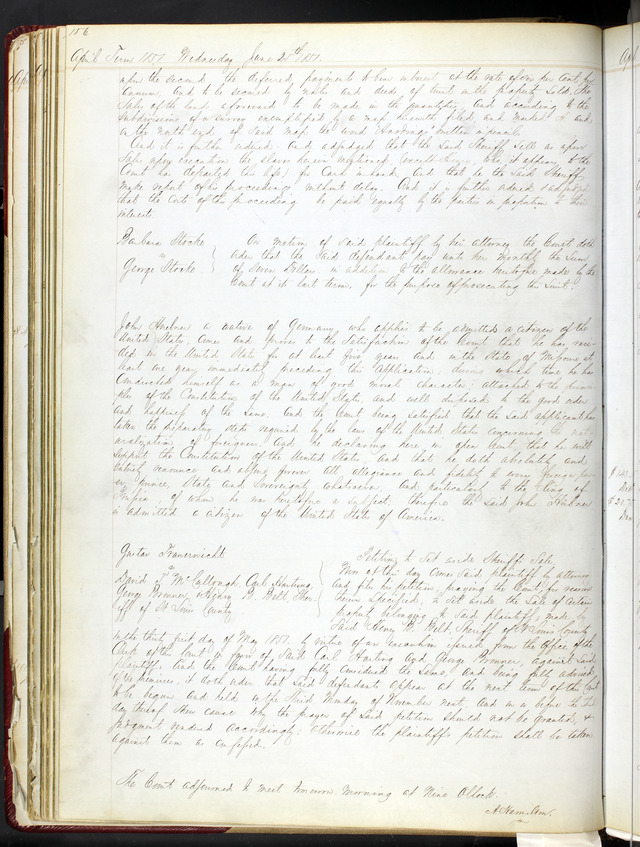 156
April Term 1851 Wednesday June 25th 1851.
upon the second, the deferred payments to bear interest at the rate of six per Cent per
Annum, And to be secured by notes and deeds of trust on the property Sold. The
Sale of the land aforesaid to be made in the quantities, and according to the
Subdivisions of a survey exemplified by a map herewith filed, and marked and
on the north end of Said map the word written in pencil.
And it is further ordered And adjudged that the Said Sheriff Sell as upon
Sale upon execution the slaves herein mentioned (except who, it appears to the
Court has departed this life) for Cash in hand, And that he the Said Sheriff
make report of his proceedings without delay. And it is further ordered & adjudged
that the Costs of the proceeding be paid equally by the parties in proportion to their
interest.
Barbara Stocke
vs
George Stocke
On motion of Said plaintiff by her attorney the Court doth
order that the Said defendant pay unto her monthly the Sum
of Seven Dollars in addition to the allowance heretofore made by the
Court at its last term, for the purpose of prosecuting this Suit.
John a native of Germany, who applies to be admitted a citizen of the
United States, Comes and proves to the Satisfaction of the Court that he has resi-
ded in the United States for at least five years And in the State of Missouri at
least one year, immediately preceding this Application; during which time he has
Conducted himself as a man of good moral character; attached to the princi-
ples of the Constitution of the United States, and well disposed to the good order
And happiness of the Same. And the Court being satisfied that the Said applicant has
taken the preparatory steps required by the laws of the United States concerning the nat-
uralization of foreigners, And he declaring here in open Court, that he will
Support the Constitution of the United States, And that he doth absolutely and
entirely renounce and abjure forever All allegiance and fidelity to every foreign pow-
er, prince, State and Sovereignty whatsoever, And particularly to the King of
Prussia, of whom he was heretofore a Subject, therefore the said John
is admitted a citizen of the United States of America.
Gustav
vs
David T McCullough, Carl Hartung
George Bronner, & Henry B. Belt, Sher-
iff of St Louis County
Petition to Set aside Sheriffs Sale.
Now at this day Comes Said plaintiff by attorney
And files his petition, praying the Court for reasons
therein Specified, to Set aside the Sale of certain
property belonging to Said plaintiff, made by
Said Henry B. Belt, Sheriff of St Louis County
on the thirty first day of May 1851, by virtue of an execution issued from the Office of the
Clerk of this Court in favor of Said Carl Hartung And George Bronner, against Said
plaintiff. And the Court having fully Considered the Same, and being fully advised
of the premises, it doth order that Said defendants appear at the next term of this Court
to be begun and held on the third Monday of November next, And on or before the third
day thereof Shew cause why the prayer of Said petition Should not be granted, &
Judgment rendered accordingly; otherwise the plaintiff's petition shall be taken
against them as confessed.
The Court adjourned to meet tomorrow morning at Nine O'Clock.
A. Hamilton.